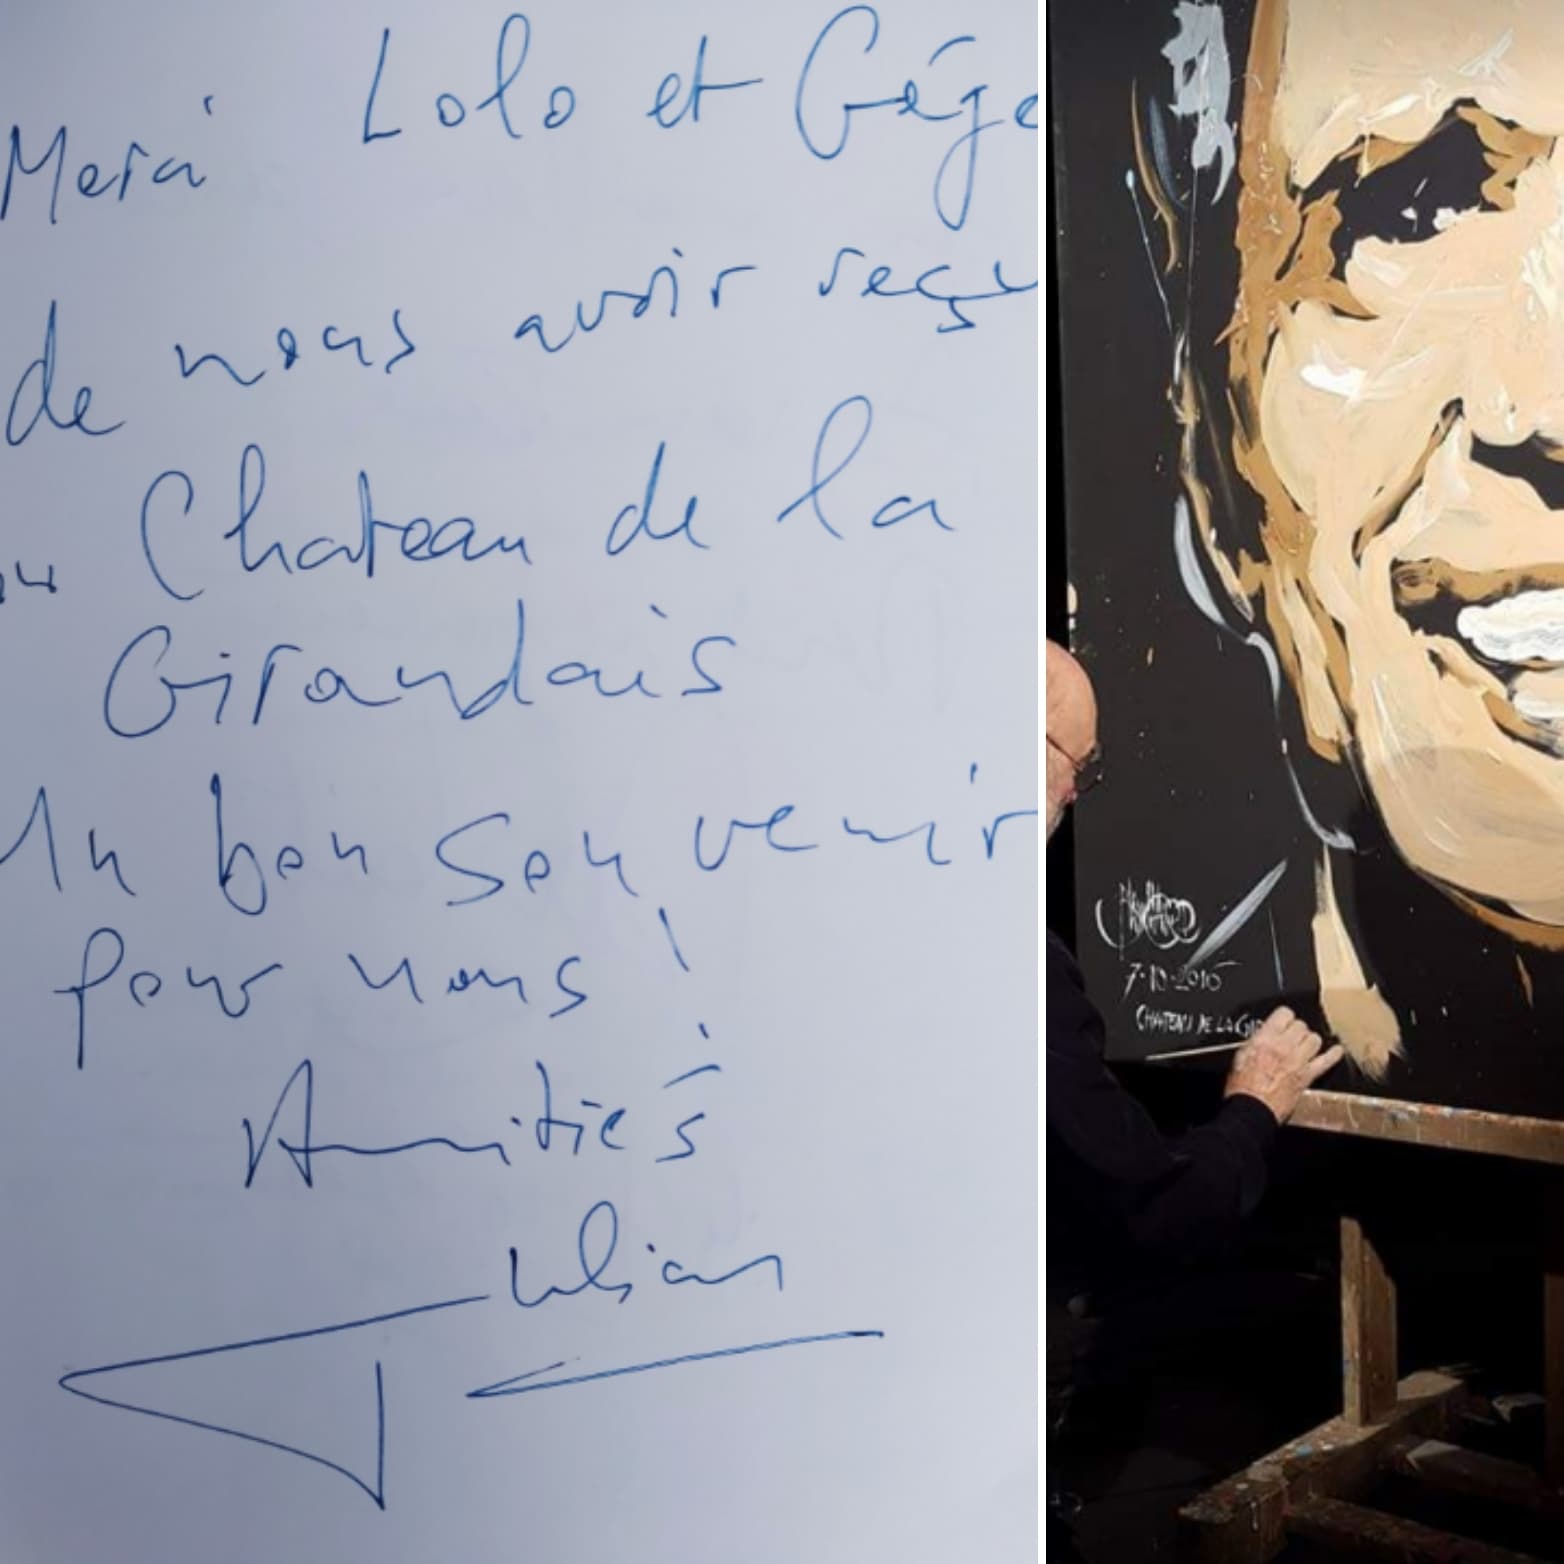 Merci Lolo et Gége
de nous avoir reçu
au Chateau de la
Girandais
Un bon souvenir
pour nous !
Amitiés
Julian
7-10-2016
CHATEAU DE LA GIR